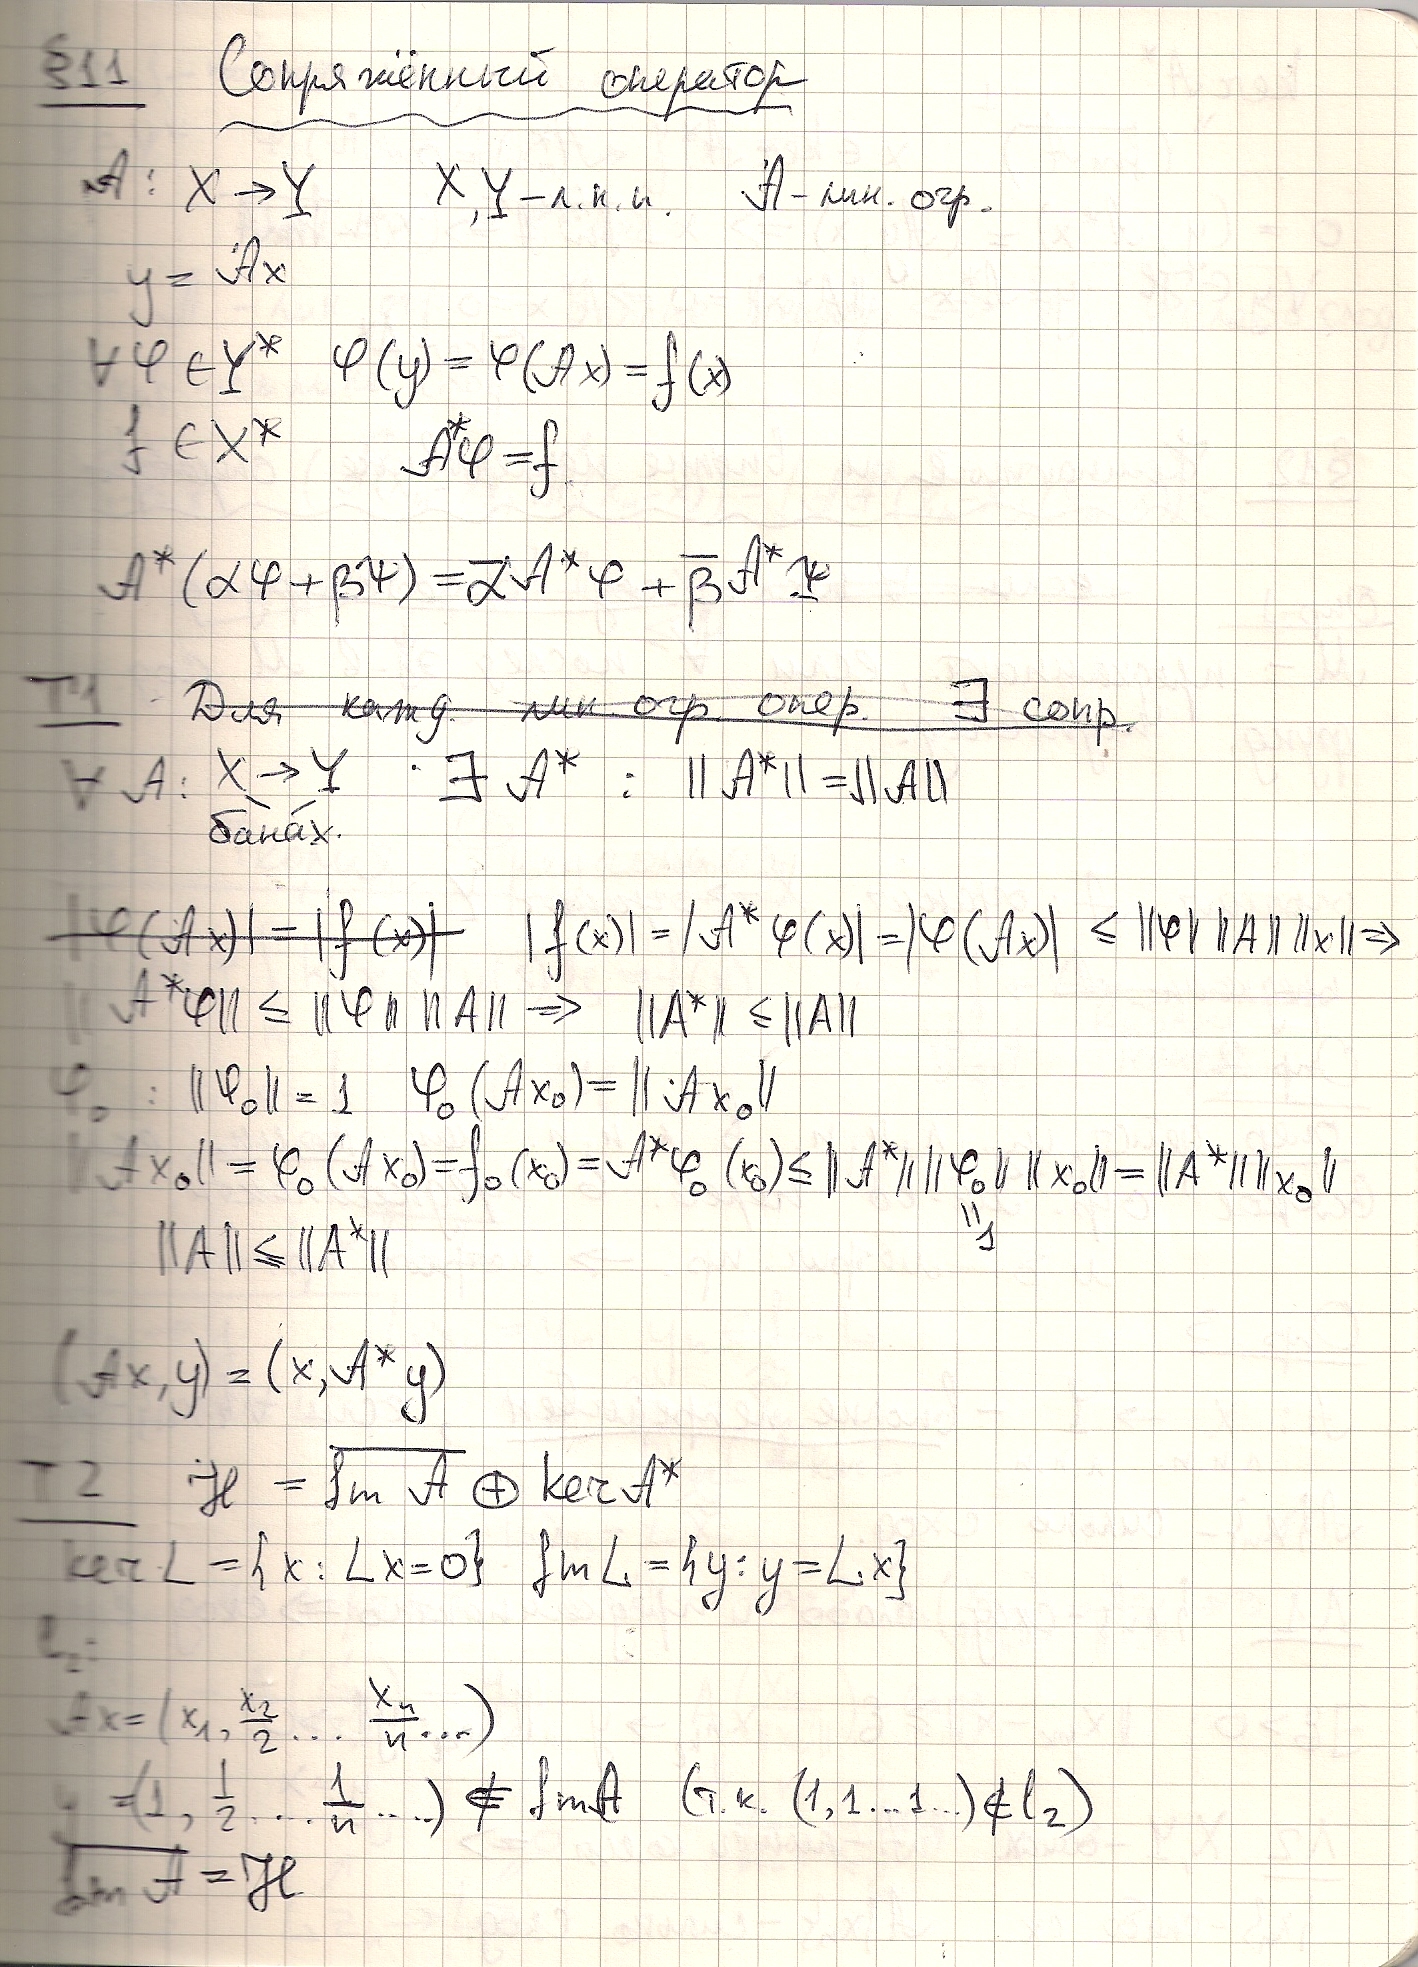 §11 Сопряжённый оператор
A: X → Y X, Y – л.н.п. A – лин. огр.
y = Ax
∀φ ∈ Y* φ(y) = φ(Ax) = f(x)
f ∈ X* A*φ = f
A*(αφ + βΨ) = ᾱA*φ + β̄A*Ψ
T1 Для кажд. лин. огр. опер. ∃ сопр.
∀ A: X → Y ∃ A* : ||A*|| = ||A||
банах.
|φ(Ax)| = |f(x)| |f(x)| = |A*φ(x)| = |φ(Ax)| ≤ ||φ|| ||A|| ||x|| ⇒
||A*φ|| ≤ ||φ|| ||A|| ⇒ ||A*|| ≤ ||A||
φ₀ : ||φ₀|| = 1 φ₀(Ax₀) = ||Ax₀||
||Ax₀|| = φ₀(Ax₀) = f₀(x₀) = A*φ₀(x₀) ≤ ||A*|| ||φ₀|| ||x₀|| = ||A*|| ||x₀||
"1
||A|| ≤ ||A*||
(Ax, y) = (x, A*y)
T2 H = \overline{Im A} ⊕ ker A*
ker L = {x : Lx = 0} Im L = {y : y = Lx}
l₂:
Ax = (x₁, x₂/2 ... xₙ/n ...)
y = (1, 1/2 ... 1/n ...) ∉ Im A (т.к. (1, 1 ... 1 ...) ∉ l₂)
\overline{Im A} = H